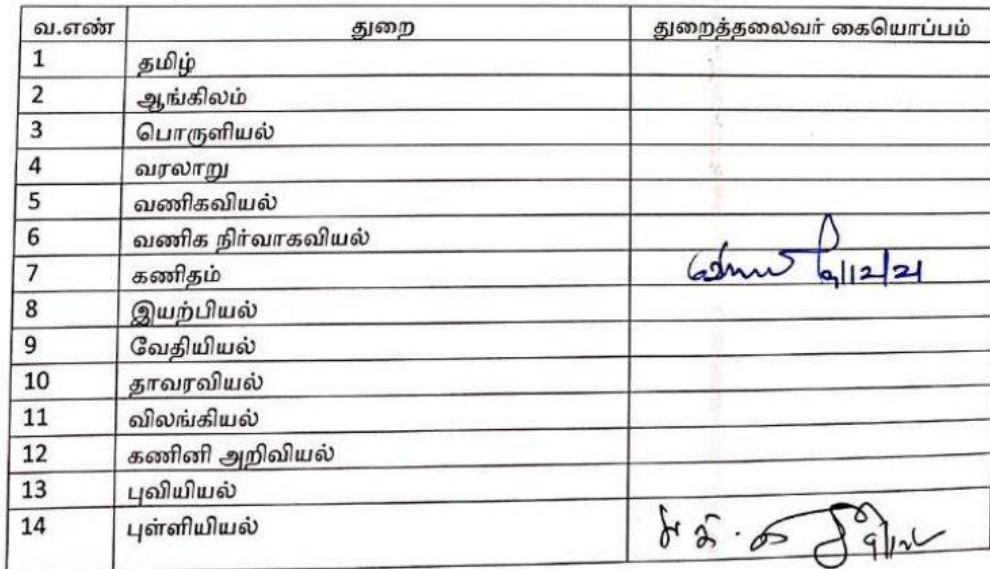 வ.எண் துறை துறைத்தலைவர் கையொப்பம்
1 தமிழ்
2 ஆங்கிலம்
3 பொருளியல்
4 வரலாறு
5 வணிகவியல்
6 வணிக நிர்வாகவியல்
7 கணிதம்
8 இயற்பியல்
9 வேதியியல்
10 தாவரவியல்
11 விலங்கியல்
12 கணினி அறிவியல்
13 புவியியல்
14 புள்ளியியல்